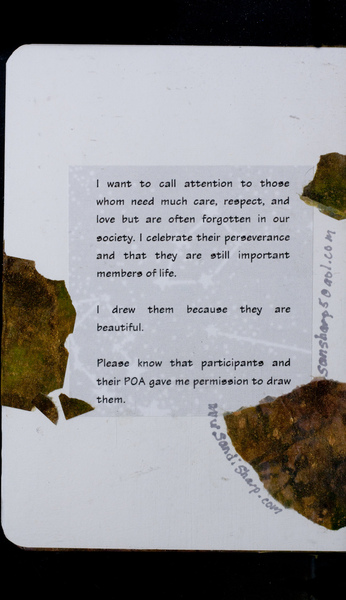 I want to call attention to those
whom need much care, respect, and
love but are often forgotten in our
society. I celebrate their perseverance
and that they are still important
members of life.
I drew them because they are
beautiful.
Please know that participants and
their POA gave me permission to draw
them.
sansharp5@aol.com
www.sandisharp.com